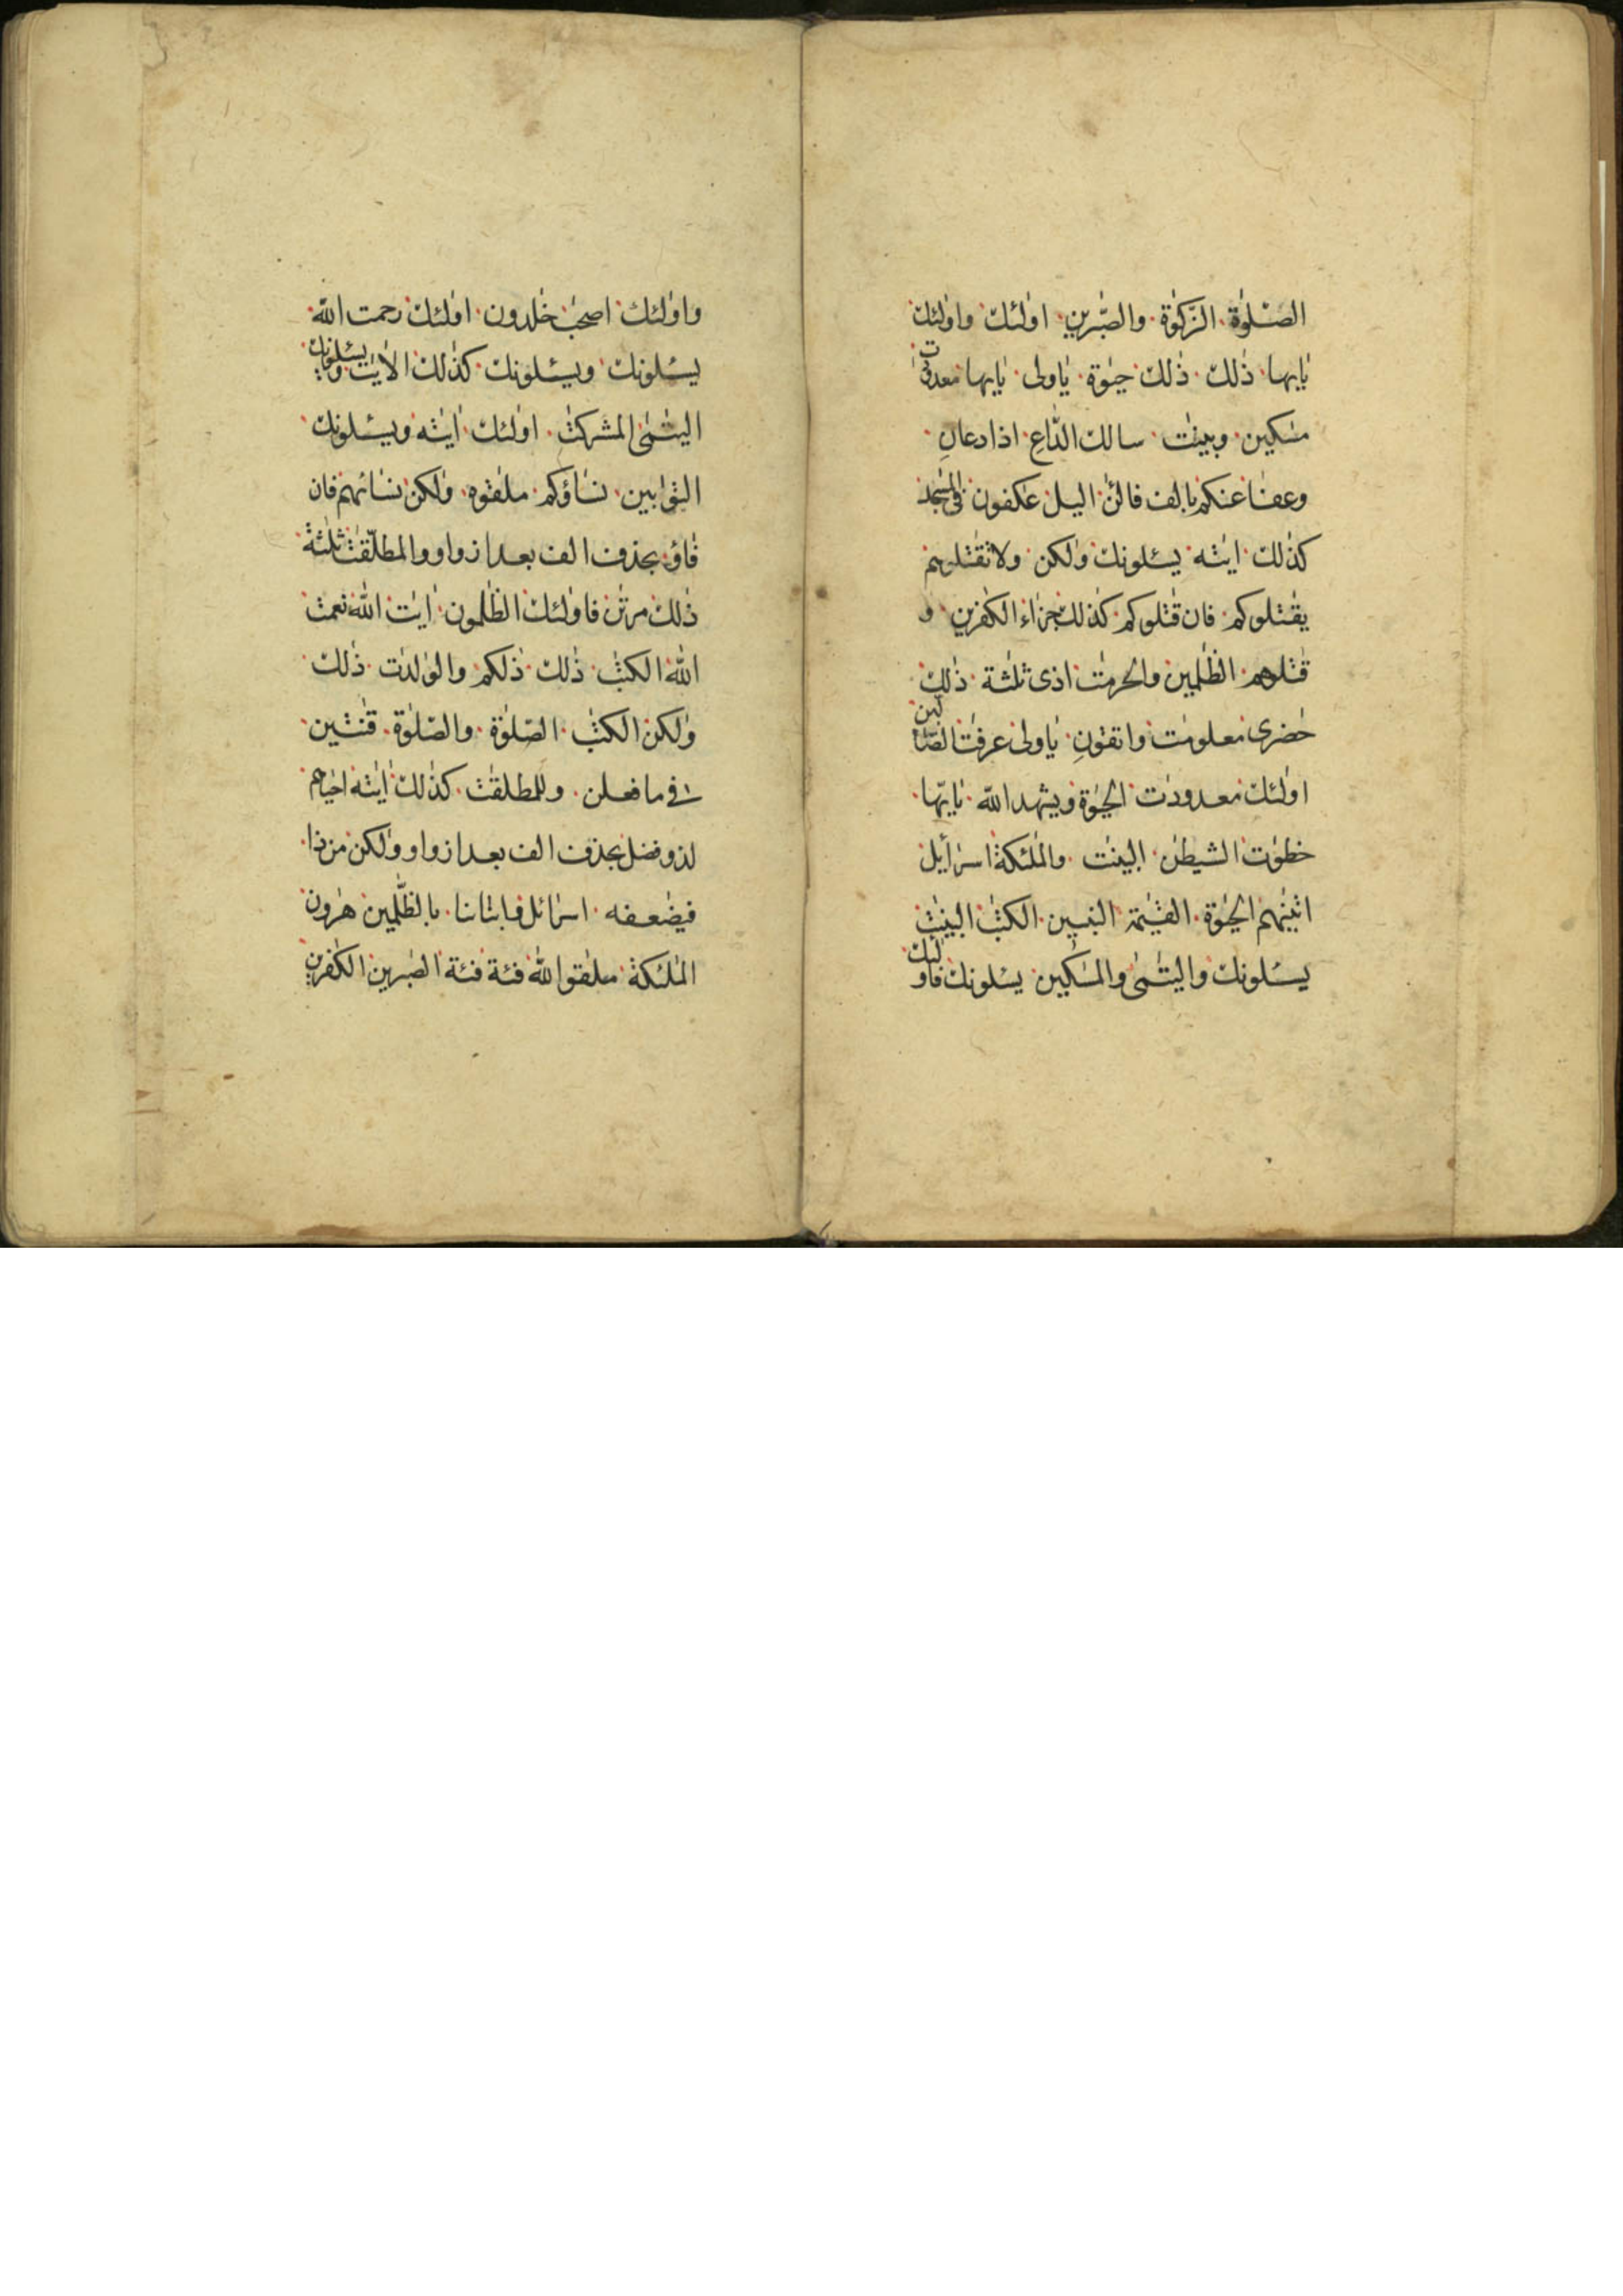 الصّلوٰة الزّكوٰة والصّٰبرين اولٰئك واولٰئك
يٰايها ذٰلك ذٰلك حيٰوة يٰاولى يٰايها معدودٰت
مسٰكين وبينٰت سالك الدّاعِ اذا دعانِ
وعفا عنكم بالف فالئٰن اليل عٰكفون فى المسٰجد
كذٰلك ايٰته يسئلونك ولٰكن ولا تقٰتلوهم
يقٰتلوكم فان قٰتلوكم كذٰلك جزاء الكٰفرين و
قٰتلوهم الظٰلمين والحرمٰت اذى ثلٰثة ذٰلك
حٰضرى معلومٰت واتقونِ يٰاولى عرفٰت الضّالين
اولٰئك معدودٰت الحيٰوة ويشهد اللّه يٰايّها
خطوٰت الشيطٰن البينٰت والملٰئكة اسرٰأيل
اتينٰهم الحيٰوة القيٰمة النبين الكتٰب البينٰت
يسئلونك واليتٰمٰى والمسٰكين يسئلونك فاولٰئك
واولٰئك اصحٰب خٰلدون اولٰئك رحمت اللّه
يسئلونك ويسئلونك كذٰلك الاٰيٰت ويسئلونك
اليتٰمٰى المشركٰت اولٰئك اٰيٰته ويسئلونك
التوٰابين نساؤكم ملٰقوه ولٰكن نسائهم فان
فاؤ بحذف الف بعد از واو والمطلّقٰت ثلٰثة
ذٰلك مرتٰن فاولٰئك الظٰلمون اٰيٰت اللّه نعمت
اللّه الكتٰب ذٰلك ذٰلكم والوٰلدٰت ذٰلك
ولٰكن الكتٰب الصّلوٰة والصّلوٰة قٰنتين
فى ما فعلن وللمطلقٰت كذٰلك اٰيٰته احيٰاهم
لذو فضل بحذف الف بعد از واو ولٰكن من ذا
فيضٰعفه اسرٰائل وابنائنا بالظّٰلمين هٰرون
الملٰئكة ملٰقوا اللّه فئة فئة الصٰبرين الكٰفرين